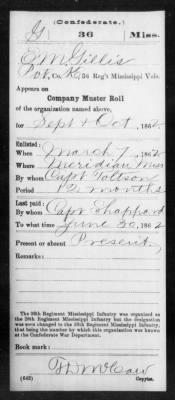 (Confederate.)
G 36 Miss.
E M Gillis
Pvt, Co. K, 36 Reg't Mississippi Vols.
Appears on
Company Muster Roll
of the organization named above,
for Sept & Oct, 1862.
Enlisted:
When March 7, 1862
Where Meridian Miss
By whom Capt Tottson
Period 12 months
Last paid:
By whom Capt Sheppard
To what time June 30, 1862
Present or absent Present
Remarks:
The 36th Regiment Mississippi Infantry was organized as
the 28th Regiment Mississippi Infantry but the designation
was soon changed to the 36th Regiment Mississippi Infantry,
that being the number by which this organization was known at
the Confederate War Department.
Book mark:
(642) Copyist.